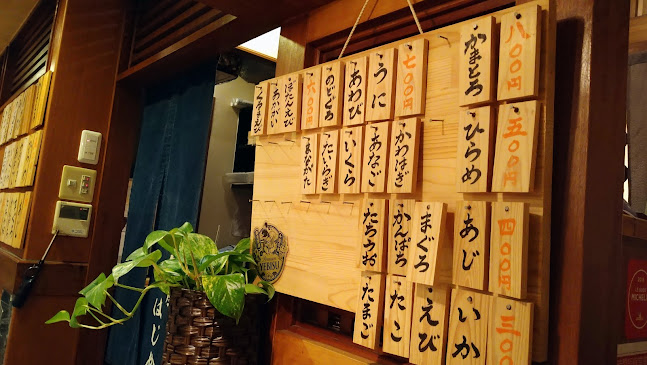 八〇〇円
かまとろ
七〇〇円
うに
あわび
のどぐろ
六〇〇円
ぼたんえび
あかがい
くるまえび
五〇〇円
ひらめ
かわはぎ
あなご
いくら
たいらぎ
四〇〇円
あじ
まぐろ
かんぱち
たちうお
三〇〇
いか
えび
たこ
たまご
YEBISU
はじ
MICHELIN